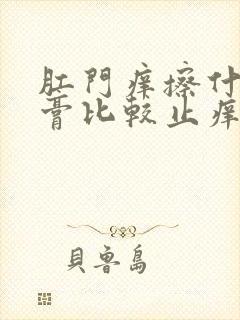 肛門痒擦什
膏比較止痒
貝魯島